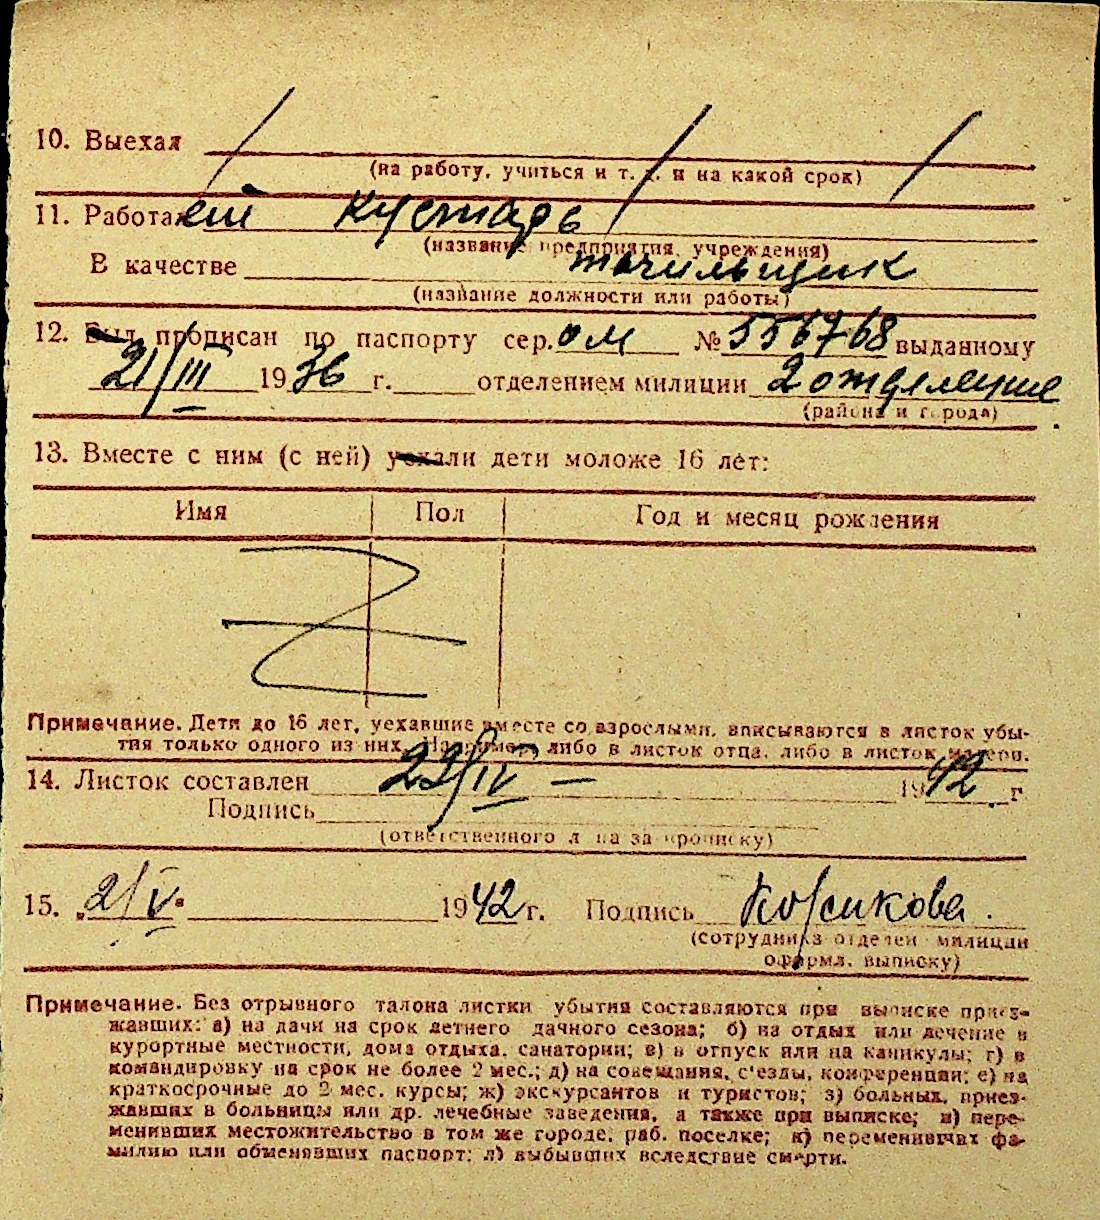 10. Выехал
(на работу, учиться и т. д. и на какой срок)
11. Работает кустарь
(название предприятия, учреждения)
В качестве точильщик
(название должности или работы)
12. Был прописан по паспорту сер. ОМ № 556768 выданному
21/III 1936 г. отделением милиции 2 отделение
(района и города)
13. Вместе с ним (с ней) уехали дети моложе 16 лет:
Имя Пол Год и месяц рождения
Z
Примечание. Дети до 16 лет, уехавшие вместе со взрослыми, вписываются в листок убы-
тия только одного из них. Например, либо в листок отца, либо в листок матери.
14. Листок составлен 29/IV — 1942 г
Подпись
(ответственного л на за прописку)
15. „2/V" 1942 г. Подпись
(сотрудника отделен милиции
оформл. выписку)
Примечание. Без отрывного талона листки убытия составляются при выписке приез-
жавших: а) на дачи на срок летнего дачного сезона; б) на отдых или лечение в
курортные местности, дома отдыха, санатории; в) в отпуск или на каникулы; г) в
командировку на срок не более 2 мес.; д) на совещания, с'езды, конференции; е) на
краткосрочные до 2 мес. курсы; ж) экскурсантов и туристов; з) больных, приез-
жавших в больницы или др. лечебные заведения, а также при выписке; и) пере-
менивших местожительство в том же городе, раб. поселке; к) переменивших фа-
милию или обменявших паспорт; л) выбывших вследствие смерти.